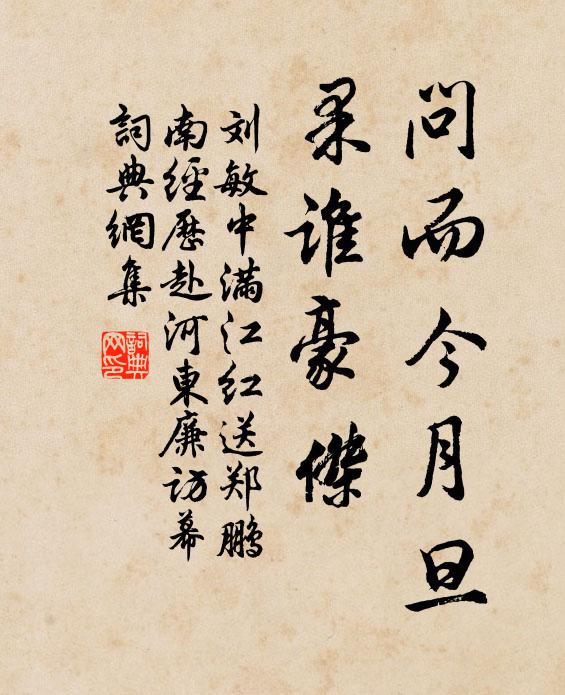 問而今月旦
果谁豪傑
刘敏中满江红送郑鹏
南經歷赴河東廉访幕
詞典網集
詞典
网印